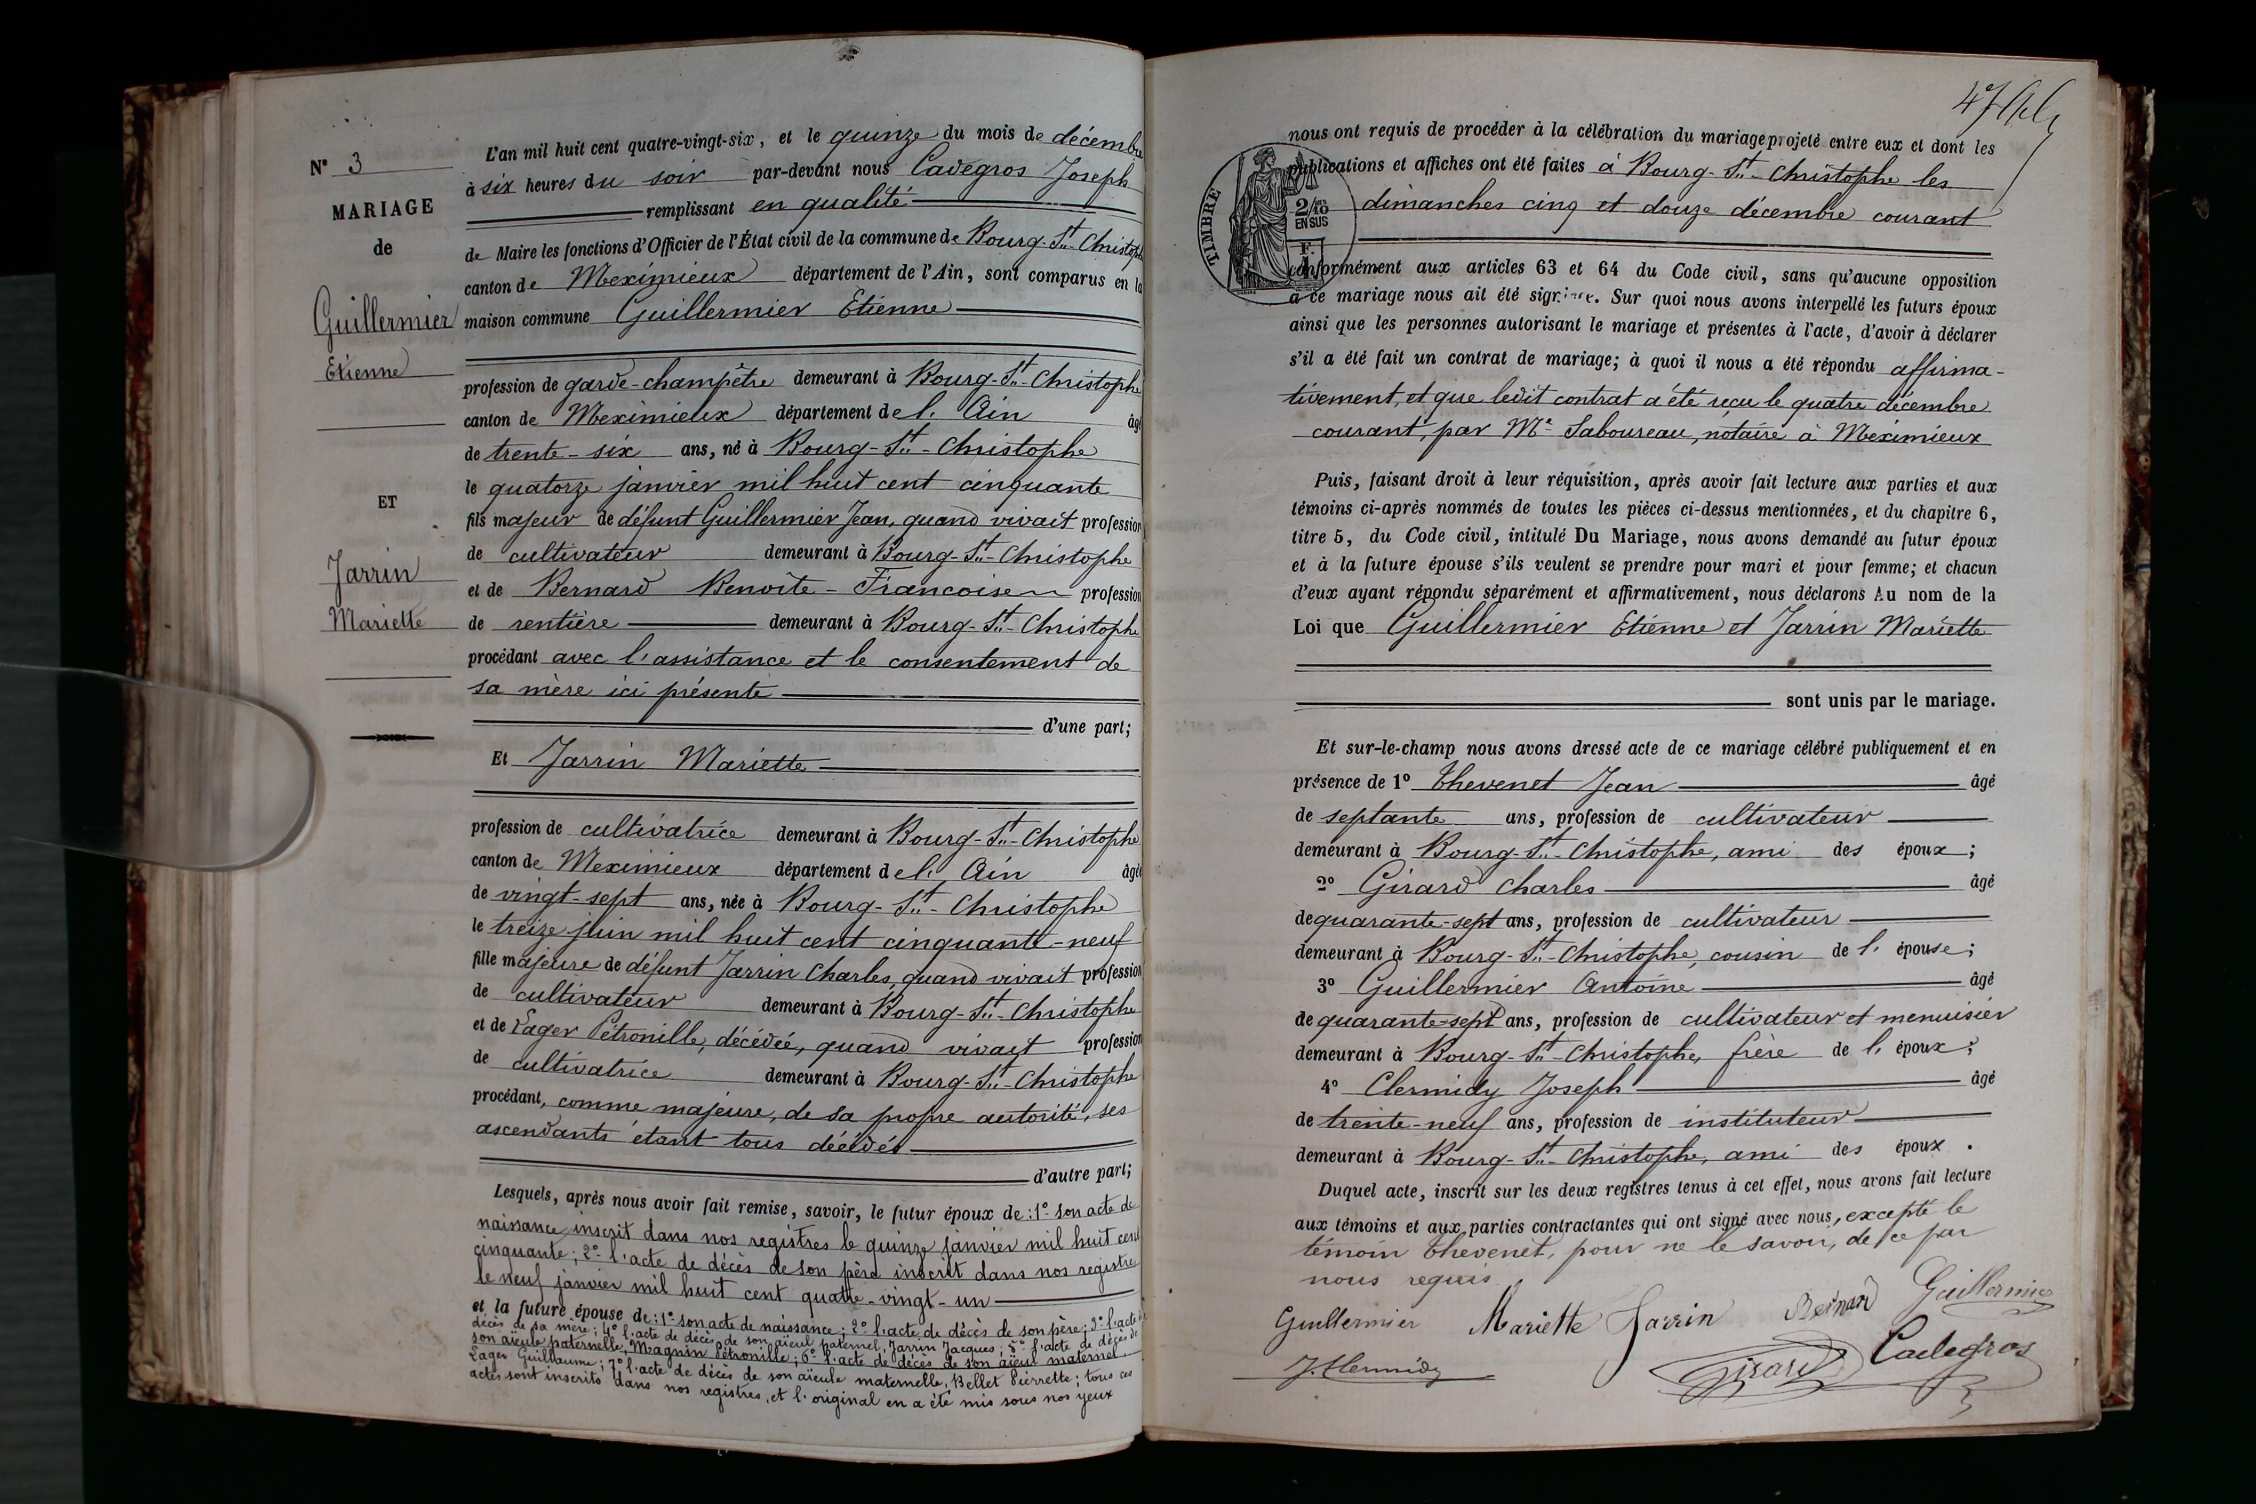 N° 3
MARIAGE
de
Guillermier
Etienne
ET
Jarrin
Mariette
L'an mil huit cent quatre-vingt-six, et le quinze du mois de décembre
à six heures du soir par-devant nous Cadegros Joseph
remplissant en qualité
de Maire les fonctions d'Officier de l'État civil de la commune de Bourg-St-Christophe
canton de Meximieux département de l'Ain, sont comparus en la
maison commune Guillermier Etienne
profession de garde-champêtre demeurant à Bourg-St-Christophe
canton de Meximieux département de l'Ain âgé
de trente-six ans, né à Bourg-St-Christophe
le quatorze janvier mil huit cent cinquante
fils majeur de défunt Guillermier Jean, quand vivait profession
de cultivateur demeurant à Bourg-St-Christophe
et de Bernard Benoîte-Francoise profession
de rentière demeurant à Bourg-St-Christophe
procédant avec l'assistance et le consentement de
sa mère ici présente
d'une part;
Et Jarrin Mariette
profession de cultivatrice demeurant à Bourg-St-Christophe
canton de Meximieux département de l'Ain âgée
de vingt-sept ans, née à Bourg-St-Christophe
le treize juin mil huit cent cinquante-neuf
fille majeure de défunt Jarrin Charles, quand vivait profession
de cultivateur demeurant à Bourg-St-Christophe
et de Lager Pétronille, décédée, quand vivait profession
de cultivatrice demeurant à Bourg-St-Christophe
procédant, comme majeure, de sa propre autorité, ses
ascendants étant tous décédés
d'autre part;
Lesquels, après nous avoir fait remise, savoir, le futur époux de: 1° son acte de
naissance inscrit dans nos registres le quinze janvier mil huit cent
cinquante; 2° l'acte de décès de son père inscrit dans nos registre
le neuf janvier mil huit cent quatre-vingt-un
et la future épouse de: 1° son acte de naissance; 2° l'acte de décès de son père; 3° l'acte de
décès de sa mère; 4° l'acte de décès de son aïeul paternel, Jarrin Jacques; 5° l'acte de décès de
son aïeule paternelle, Magnin Pétronille; 6° l'acte de décès de son aïeul maternel,
Lager Guillaume; 7° l'acte de décès de son aïeule maternelle, Bellet Pierrette; tous ces
actes sont inscrits dans nos registres, et l'original en a été mis sous nos yeux
47
TIMBRE
2/10
EN SUS
F.
nous ont requis de procéder à la célébration du mariage projeté entre eux et dont les
publications et affiches ont été faites à Bourg-St-Christophe les
dimanches cinq et douze décembre courant
conformément aux articles 63 et 64 du Code civil, sans qu'aucune opposition
à ce mariage nous ait été signifiée. Sur quoi nous avons interpellé les futurs époux
ainsi que les personnes autorisant le mariage et présentes à l'acte, d'avoir à déclarer
s'il a été fait un contrat de mariage; à quoi il nous a été répondu affirma-
tivement, et que ledit contrat a été reçu le quatre décembre
courant, par Me Saboureau, notaire à Meximieux
Puis, faisant droit à leur réquisition, après avoir fait lecture aux parties et aux
témoins ci-après nommés de toutes les pièces ci-dessus mentionnées, et du chapitre 6,
titre 5, du Code civil, intitulé Du Mariage, nous avons demandé au futur époux
et à la future épouse s'ils veulent se prendre pour mari et pour femme; et chacun
d'eux ayant répondu séparément et affirmativement, nous déclarons Au nom de la
Loi que Guillermier Etienne et Jarrin Mariette
sont unis par le mariage.
Et sur-le-champ nous avons dressé acte de ce mariage célébré publiquement et en
présence de 1° Thevenet Jean âgé
de septante ans, profession de cultivateur
demeurant à Bourg-St-Christophe, ami des époux;
2° Girard Charles âgé
de quarante-sept ans, profession de cultivateur
demeurant à Bourg-St-Christophe, cousin de l'épouse;
3° Guillermier Antoine âgé
de quarante-sept ans, profession de cultivateur et menuisier
demeurant à Bourg-St-Christophe, frère de l'époux;
4° Clermidy Joseph âgé
de trente-neuf ans, profession de instituteur
demeurant à Bourg-St-Christophe, ami des époux.
Duquel acte, inscrit sur les deux registres tenus à cet effet, nous avons fait lecture
aux témoins et aux parties contractantes qui ont signé avec nous, excepté le
témoin Thevenet, pour ne le savoir, de ce par
nous requis
Guillermier Mariette Jarrin Bernard Guillermier
J. Clermidy Girard Cadegros